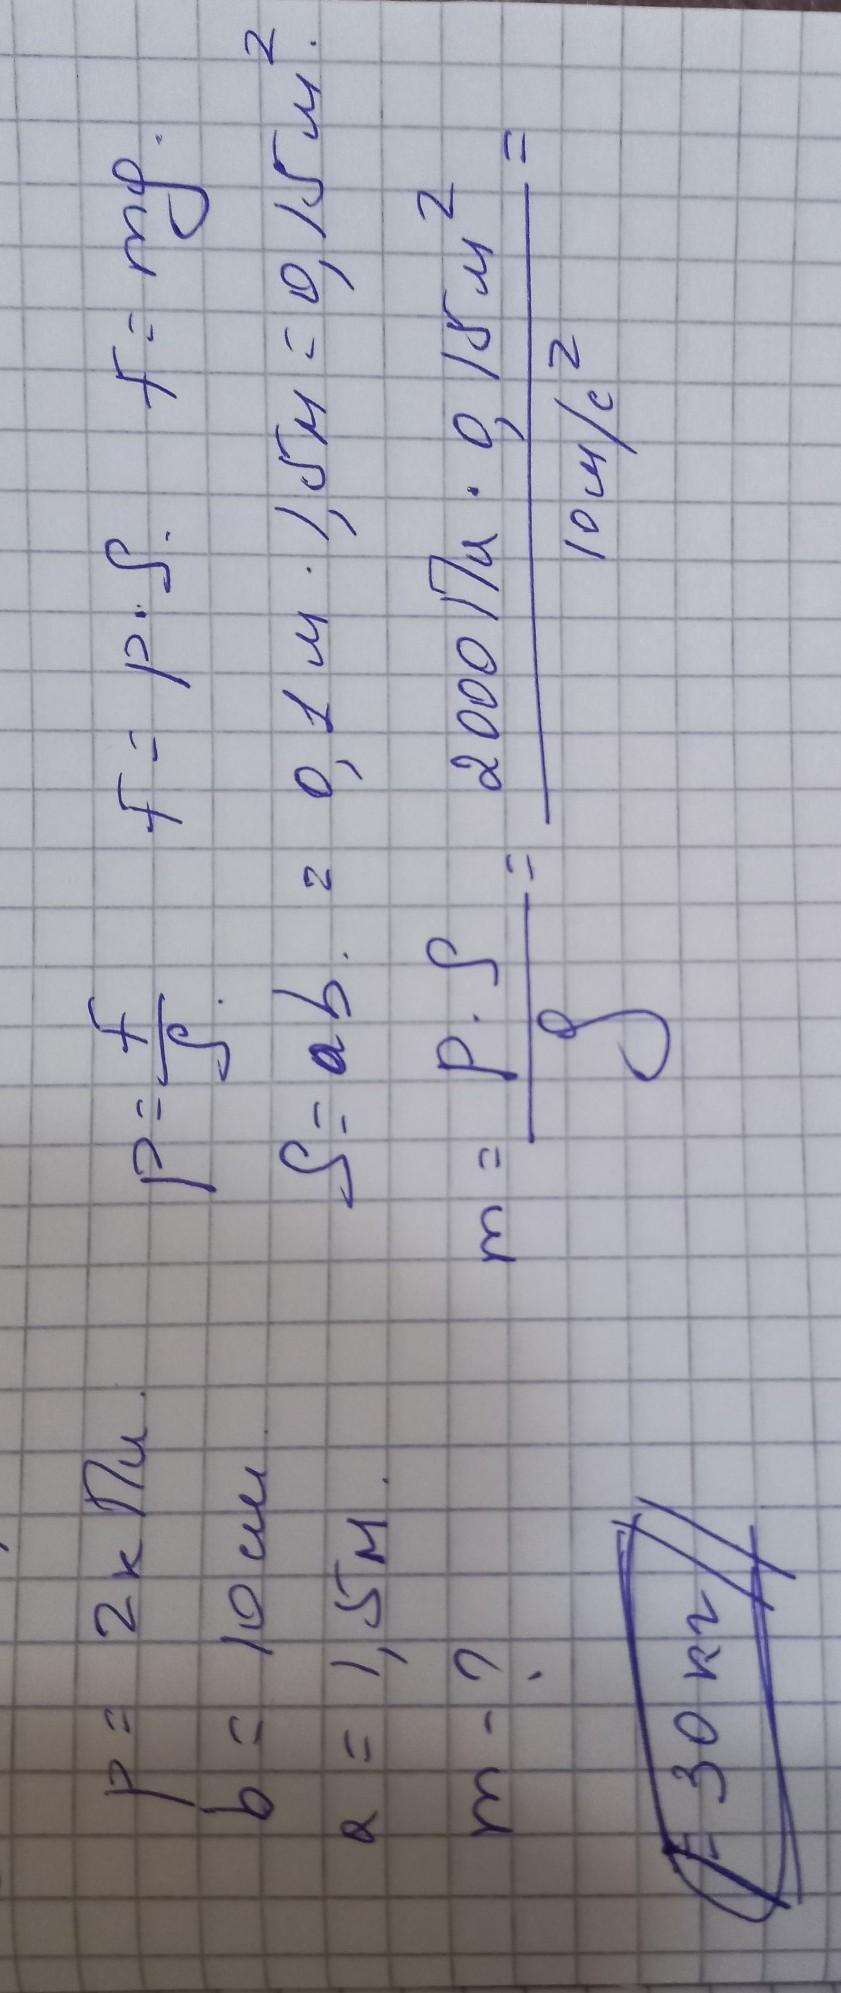 p = 2 кПа.
b = 10 см.
a = 1,5 м.
m - ?
p = F/S. F = p · S. F = mg.
S = ab. = 0,1 м · 1,5 м = 0,15 м².
m = p · S / g = 2000 Па · 0,15 м² / 10 м/с² =
= 30 кг